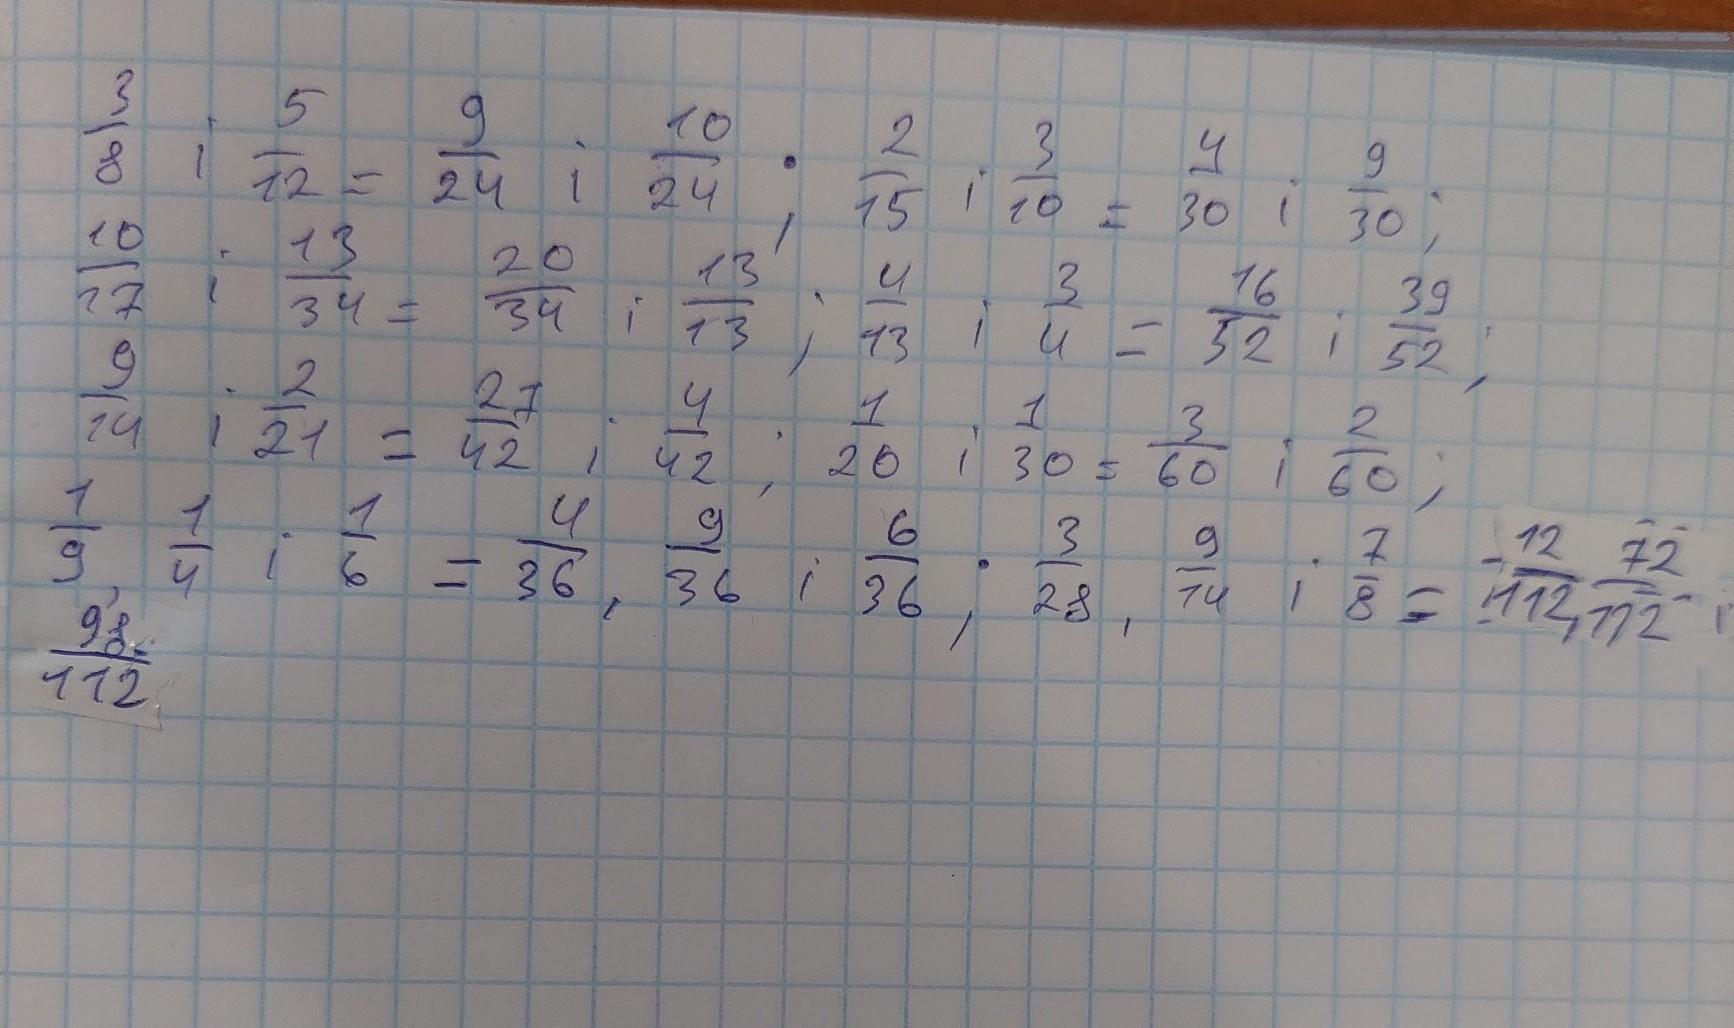 3/8 і 5/12 = 9/24 і 10/24 ; 2/15 і 3/10 = 4/30 і 9/30 ;
10/17 і 13/34 = 20/34 і 13/13 ; 4/13 і 3/4 = 16/52 і 39/52 ;
9/14 і 2/21 = 27/42 і 4/42 ; 1/20 і 1/30 = 3/60 і 2/60 ;
1/9 , 1/4 і 1/6 = 4/36 , 9/36 і 6/36 ; 3/28 , 9/14 і 7/8 = 12/112 , 72/112 і
98/112